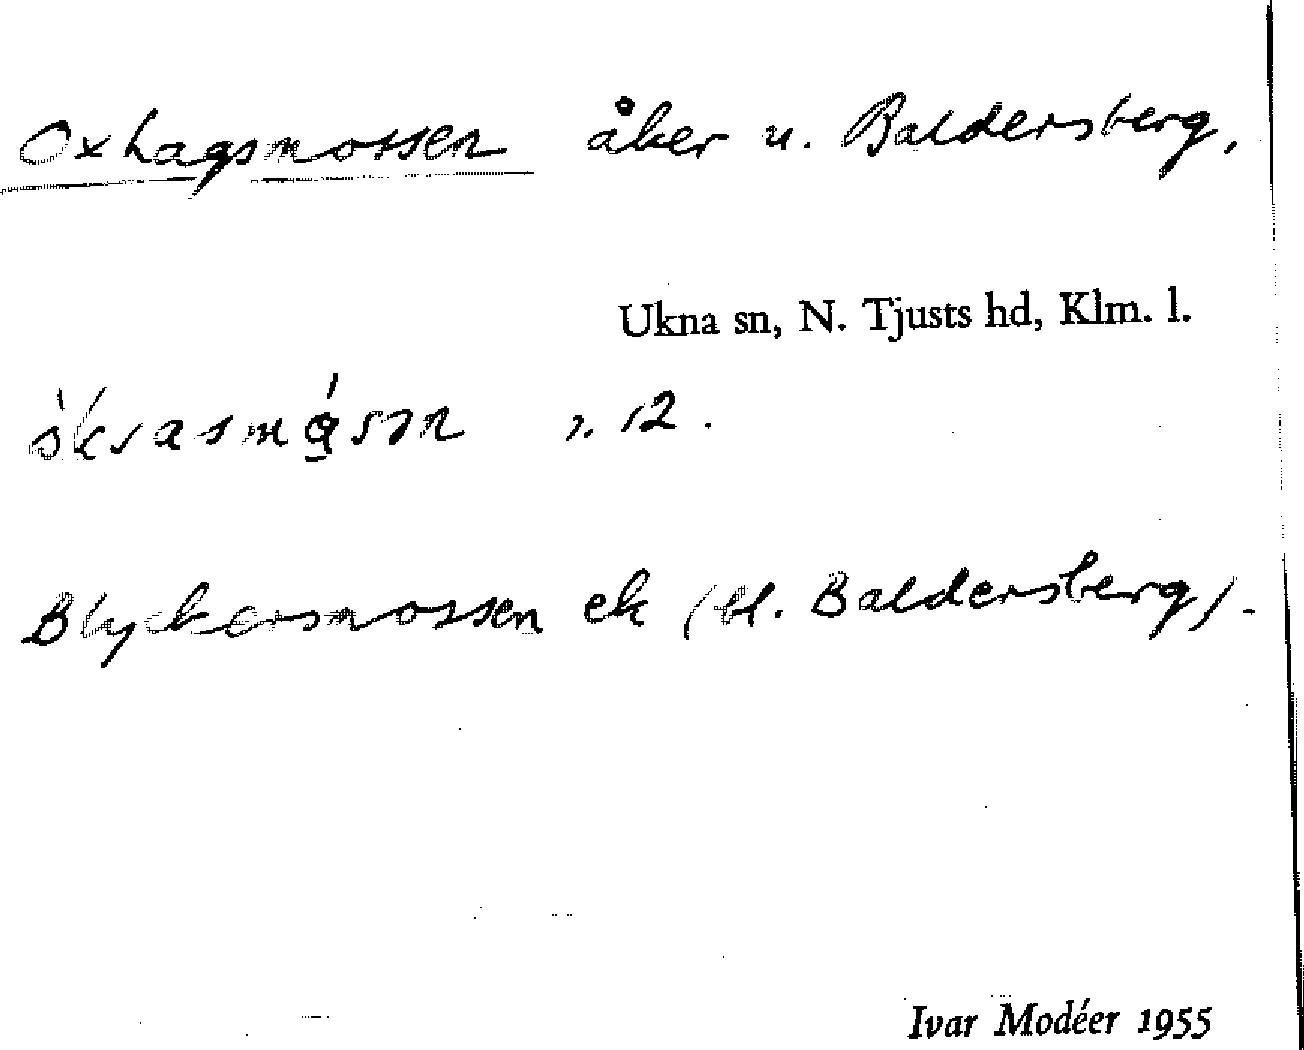 Oxhagsmossen åker u. Baldersberg,
Ukna sn, N. Tjusts hd, Klm. l.
12.
Blyckersmossen ek (bl. Baldersberg).
Ivar Modéer 1955